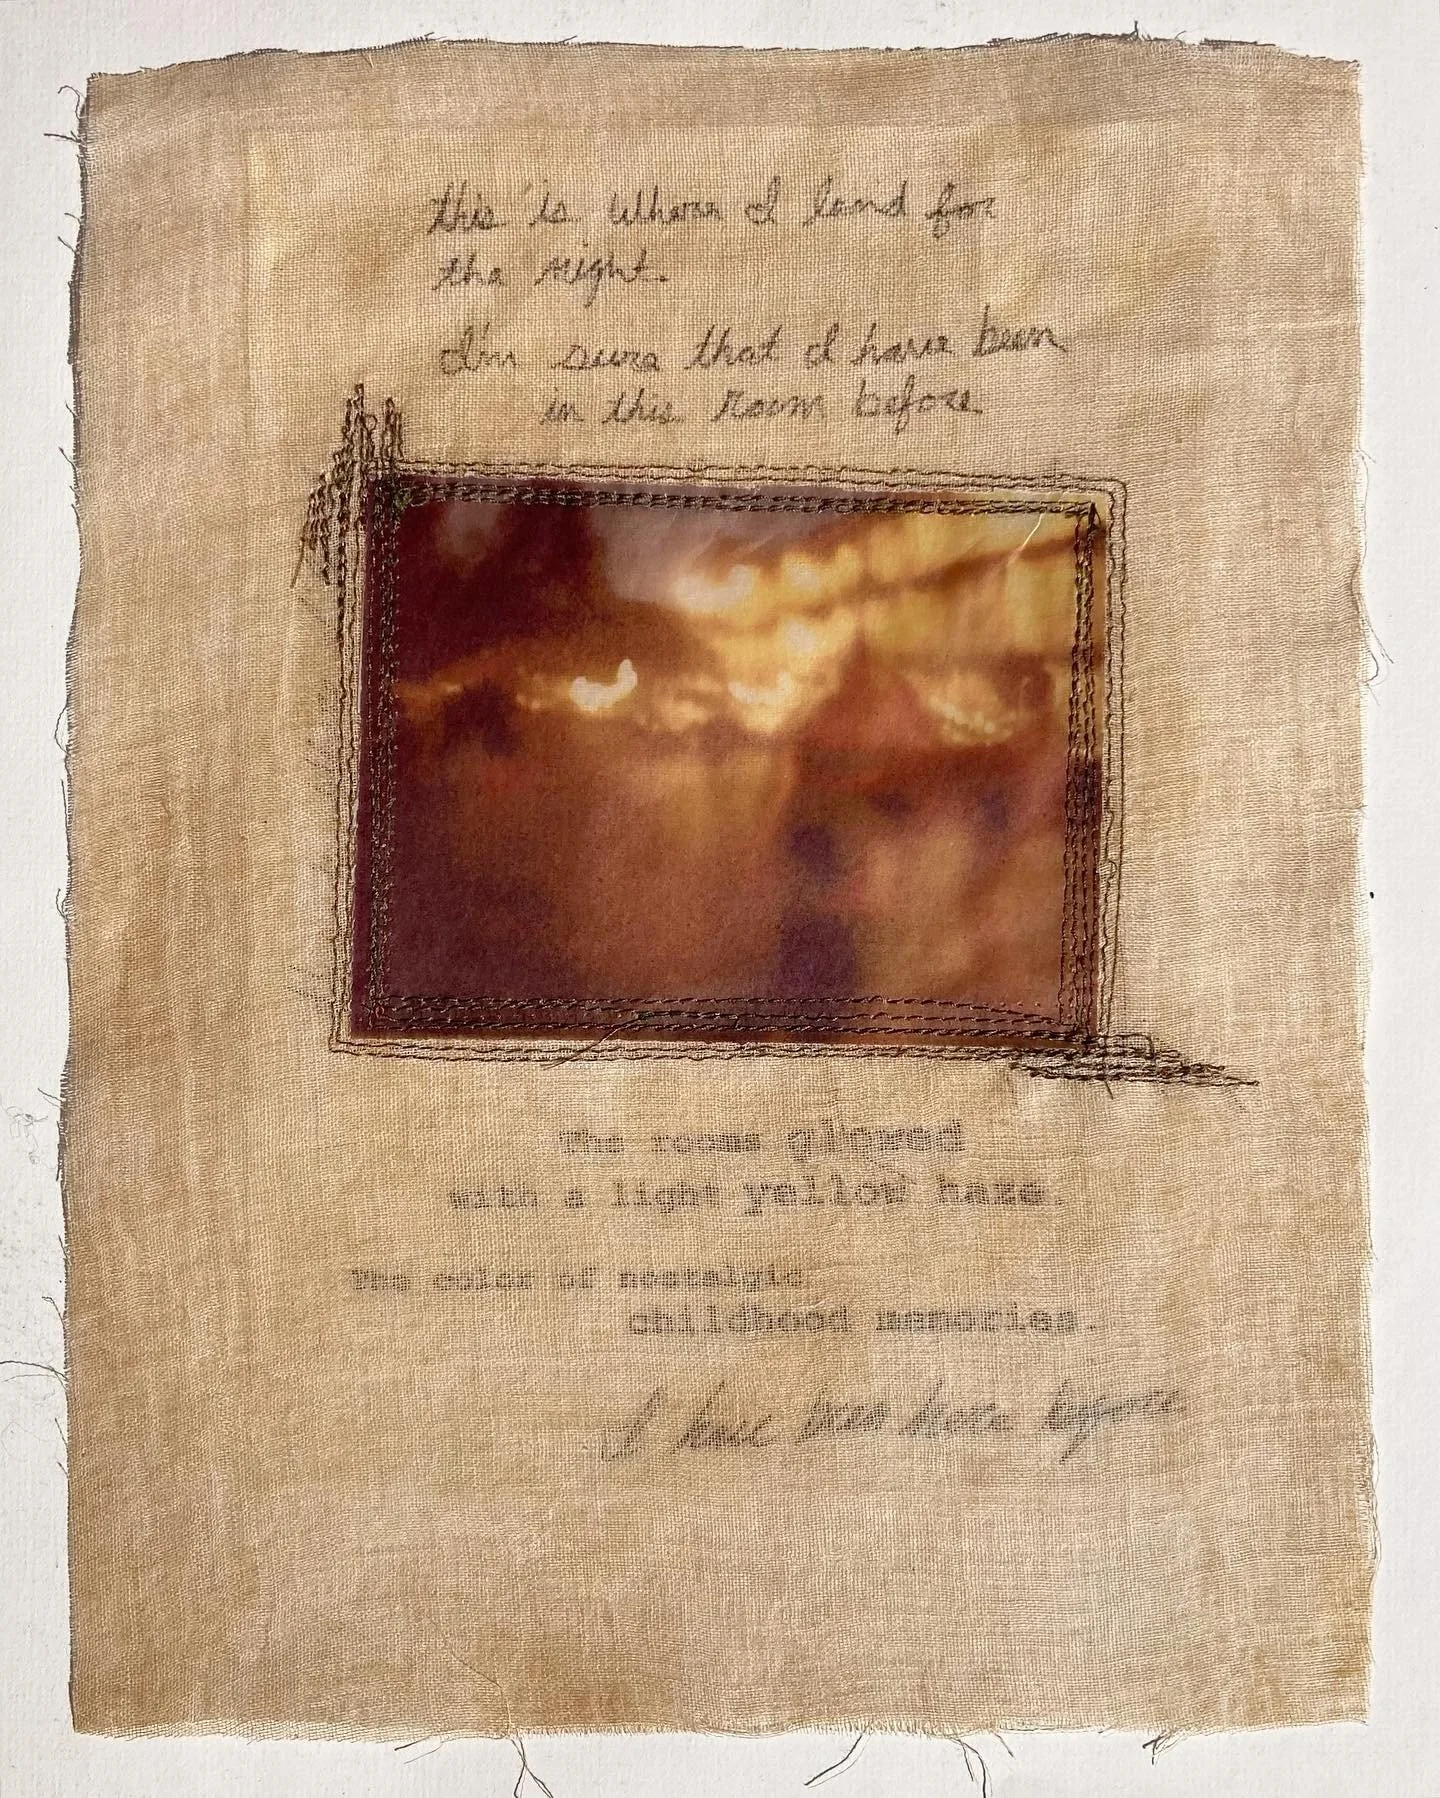 this is where I land for
the night.
I'm sure that I have been
in this room before
The rooms glowed
with a light yellow haze.
The color of nostalgic
childhood memories.
I have been here before